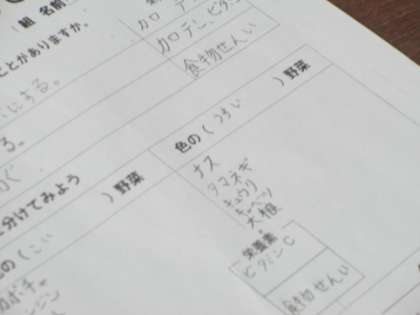 組 名前
カロテン、ビタミン
カロテン、ビタ
食物せんい
ことがありますか。
にする。
る。
に分けてみよう
)野菜
色の(うすい )野菜
ナス
タマネギ
キュウリ
キャベツ
大根
栄養素
ビタミンC
食物せんい
の(こい
カボチャ
ニンジン